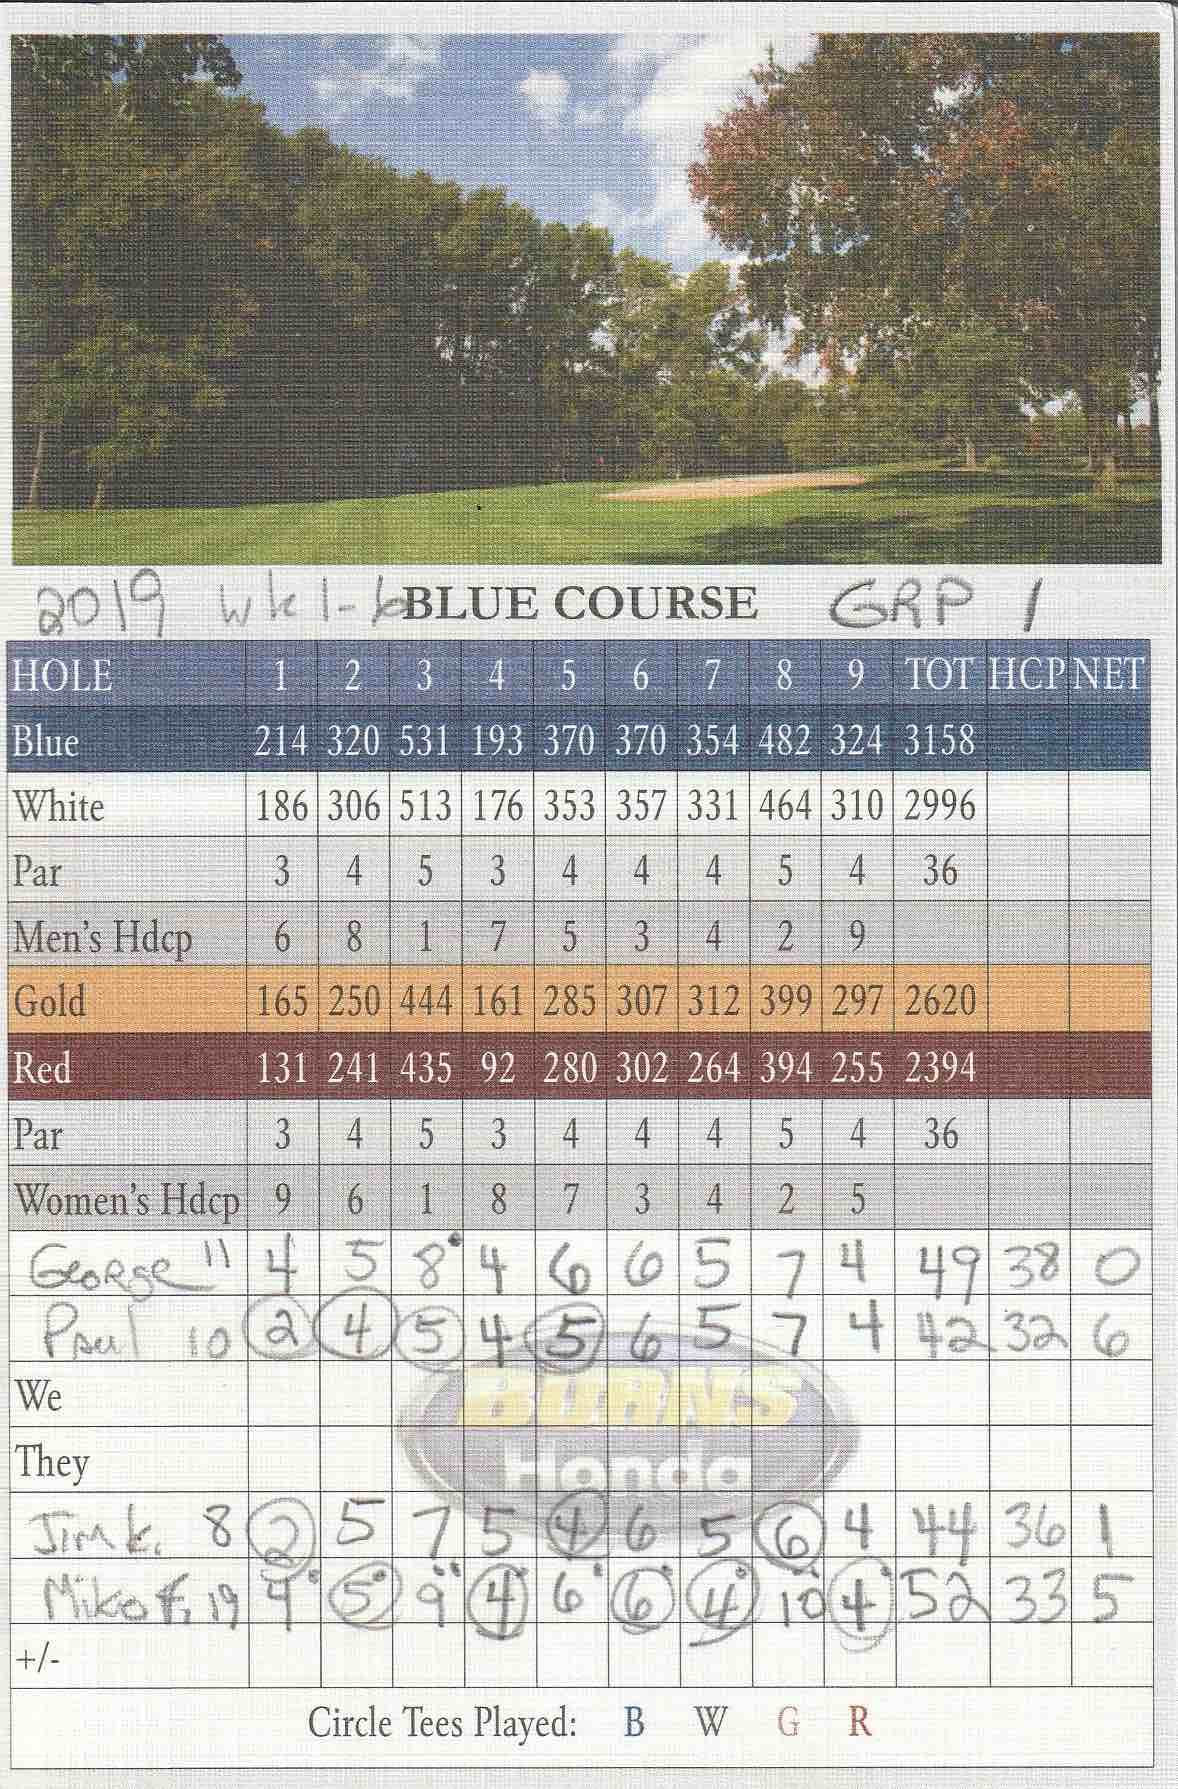 2019 wk 1-6 BLUE COURSE GRP 1
HOLE 1 2 3 4 5 6 7 8 9 TOT HCP NET
Blue 214 320 531 193 370 370 354 482 324 3158
White 186 306 513 176 353 357 331 464 310 2996
Par 3 4 5 3 4 4 4 5 4 36
Men's Hdcp 6 8 1 7 5 3 4 2 9
Gold 165 250 444 161 285 307 312 399 297 2620
Red 131 241 435 92 280 302 264 394 255 2394
Par 3 4 5 3 4 4 4 5 4 36
Women's Hdcp 9 6 1 8 7 3 4 2 5
George 11 4 5 8 4 6 6 5 7 4 49 38 0
Paul 10 2 4 5 4 5 6 5 7 4 42 32 6
We
BURNS
They
Honda
Jim k. 8 2 5 7 5 4 6 5 6 4 44 36 1
Mike F. 19 4 5 9 4 6 6 4 10 4 52 33 5
+/-
Circle Tees Played: B W G R